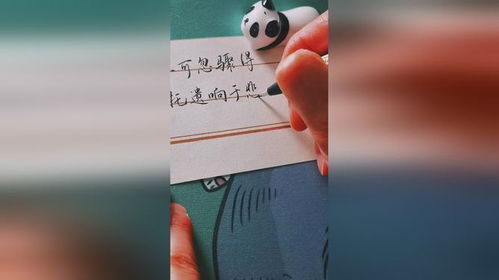 可忽骤得
托遗响于悲